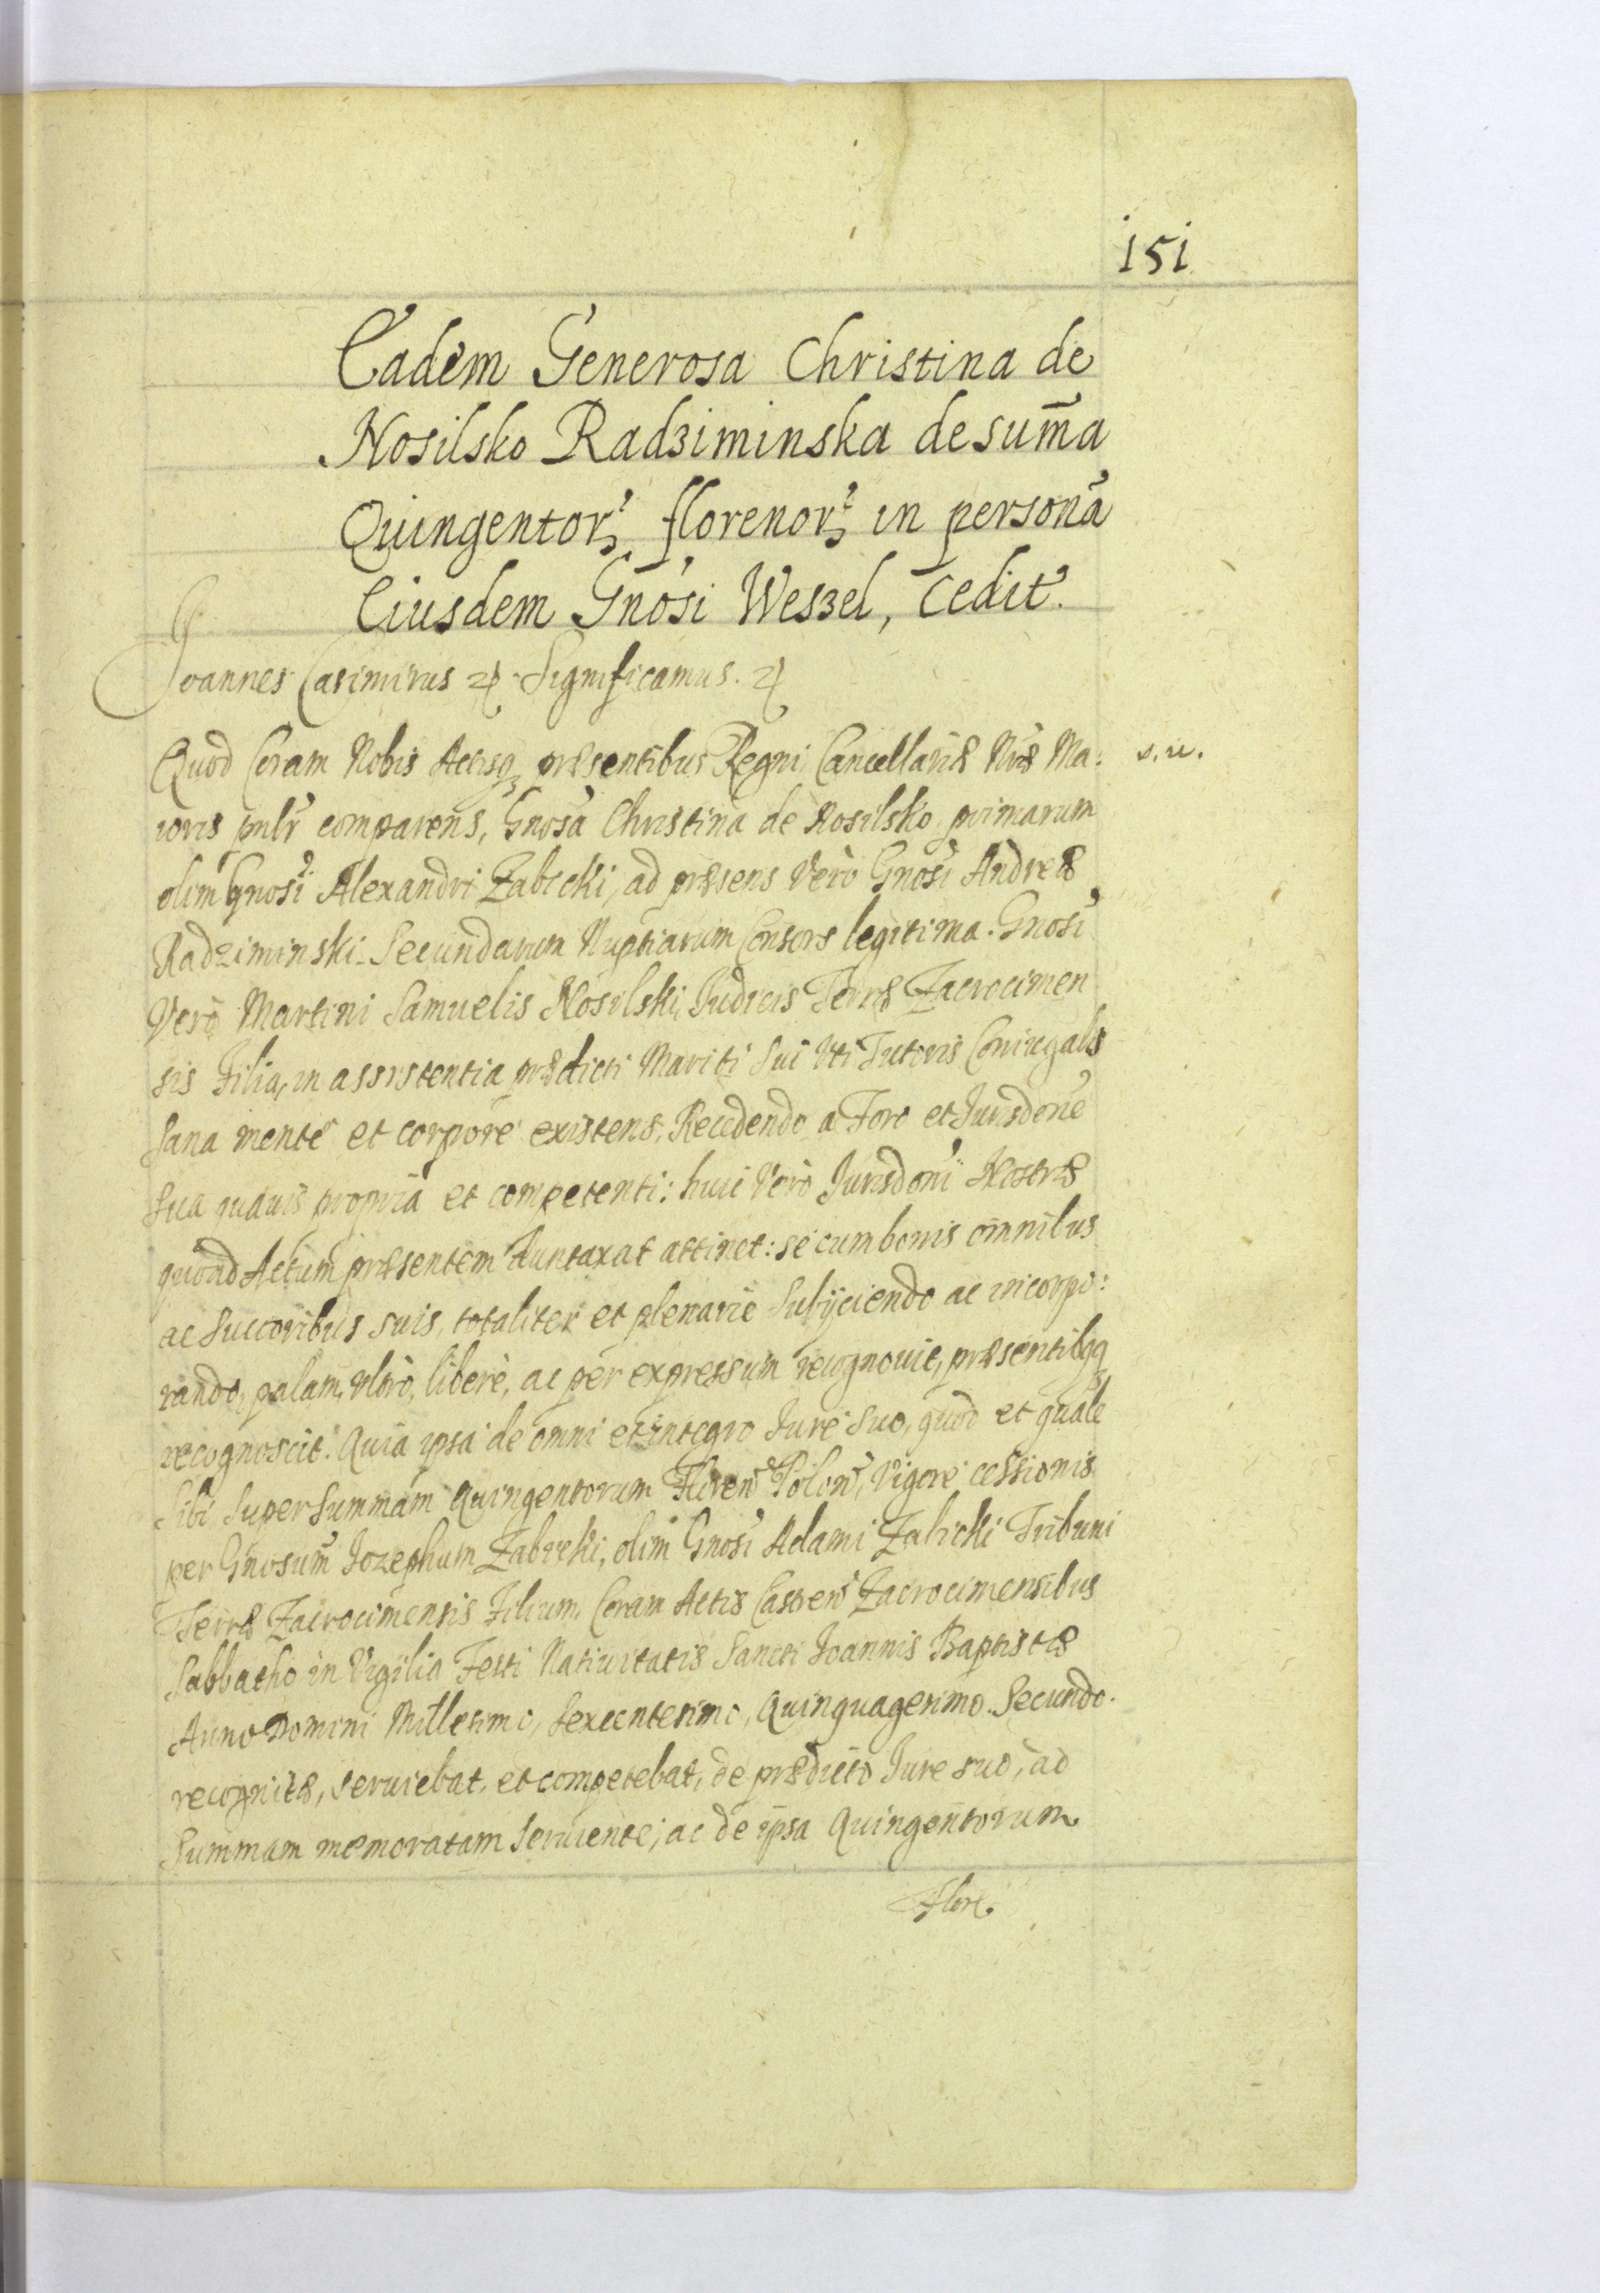 151
Eadem Generosa Christina de
Nosilsko Radziminska de sum̄a
Quingentorꝫ florenorꝫ in personā
Eiusdem Gnosi Weszel, Cedit.
Joannes Casimirus ꝛ Significamus. ꝛ
Quod Coram Nobis Actisqꝫ præsentibus Regni Cancellariæ Nræ Ma:
s. u.
ioris pnlr comparens, Gnosa Christina de Nosilsko primarum
olim Gnosi Alexandri Zabicki, ad præsens Verò Gnosi Andreæ
Radziminski Secundarum Nuptiarum Consors legitima. Gnosi
Verò Martini Samuelis Nosilski, Judicis Terræ Zacrocimen
sis Filia, in assistentia prædicti Mariti Sui Vti Tutoris Coniugalis
Sana mente et corpore existens, Recedendo a Foro et Jurisdone
Sua quauis propria et competenti: huic Verò Jurisdoni Nostræ
quoad Actum præsentem duntaxat attinet: se cum bonis omnibus
ac Succoribus suis, totaliter et plenarie Subijciendo ac incorpo:
rando, palam, vltrò, liberè, ac per expressum recognouit, præsentibqꝫ
recognoscit. Quia ipsa de omni et integro Jure Suo, quod et quale
Sibi Super Summam Quingentorum Floren Polon, Vigore cessionis
per Gnosum Jozephum Zabicki, olim Gnosi Adami Zabicki Tribuni
Terræ Zacrocimensis Filium, Coram Actis Castren Zacrocimensibus
Sabbatho in Vigilia Festi Natiuitatis Sancti Joannis Baptistæ
Anno Domini Millesimo, Sexcentesimo, Quinquagesimo Secundo.
recognitæ, seruiebat, et competebat, de prædicto Jure suo, ad
Summam memoratam seruiente, ac de ipsa Quingentorum
Flore.